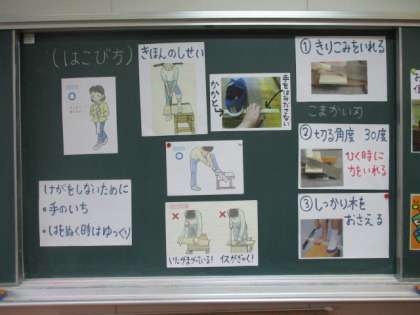 (はこび方)
きほんのしせい
かかと→
手をはみださない
①きりこみをいれる
こまかいめ
②切る角度 30度
ひく時に
力をいれる
③しっかり木を
おさえる
けがをしないために
・手のいち
・はをぬく時はゆっくり
いたがまがっている!
イスがぎゃく!